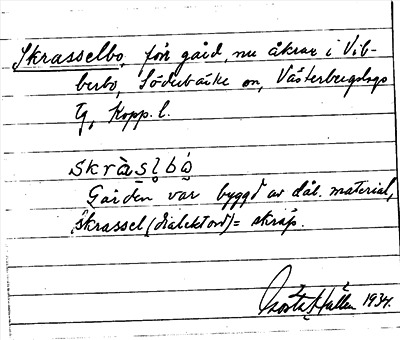 Skrasselbo, förr gård, nu åkrar i Vib-
berbo, Söderbärke sn, Västerbergslags
tg, Kopp. l.
skràsl̥bå̀
Gården var byggd av dål. material,
skrassel (dialektord) = skräp.
Gösta Hallen 1934.